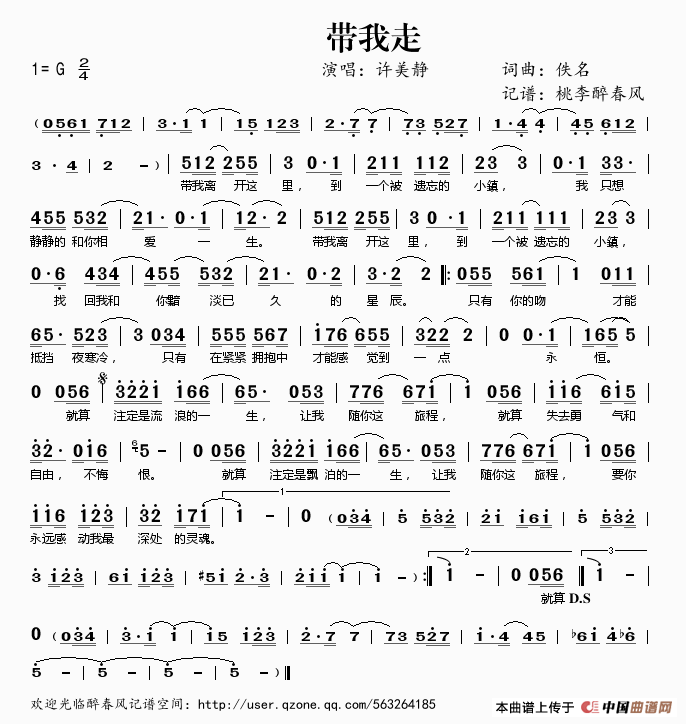 带我走
1=G 2/4 演唱：许美静 词曲：佚名
记谱：桃李醉春风
(0561 712 | 3·1 1 | 15 123 | 2·7 7 | 73 527 | 1·4 4 | 45 612
3·4 | 2 - ) | 512 255 | 3 0·1 | 211 112 | 23 3 | 0·1 33·
带我离 开这 里，到 一个被 遗忘的 小鎮， 我 只想
455 532 | 21· 0·1 | 12·2 | 512 255 | 3 0·1 | 211 111 | 23 3 |
静静的 和你相 爱 一 生。 带我离 开这 里，到 一个被 遗忘的 小鎮，
0·6 434 | 455 532 | 21· 0·2 | 3·2 2 |: 055 561 | 1 011 |
找 回我和 你黯 淡已 久 的 星 辰。 只有 你的吻 才能
65· 523 | 3 034 | 555 567 | 176 655 | 322 2 | 0 0·1 | 165 5 |
抵挡 夜寒冷， 只有 在紧紧 拥抱中 才能感 觉到 一 点 永 恒。
0 056 | 3221 166 | 65· 053 | 776 671 | 1 056 | 116 615 |
就算 注定是流 浪的一 生，让我 随你这 旅程， 就算 失去勇 气和
32· 016 | 5 - | 0 056 | 3221 166 | 65· 053 | 776 671 | 1 056 |
自由，不悔 恨。 就算 注定是飘 泊的一 生，让我 随你这 旅程， 要你
1
116 123 | 223 171 | 1 - | 0 (034 | 5 532 | 21 161 | 5 532 |
永远感 动我最 深处 的灵魂。
2 3
3 123 | 61 123 | #51 2·3 | 211 1 | 1 - ) :| 1 - | 0 056 :| 1 - |
就算 D.S
0 (034 | 3·1 1 | 15 123 | 2·7 7 | 73 527 | 1·4 4 | b61 4b6 |
5 - | 5 - | 5 - | 5 - )|
欢迎光临醉春风记谱空间：http://user.qzone.qq.com/563264185
本曲谱上传于 中国曲谱网